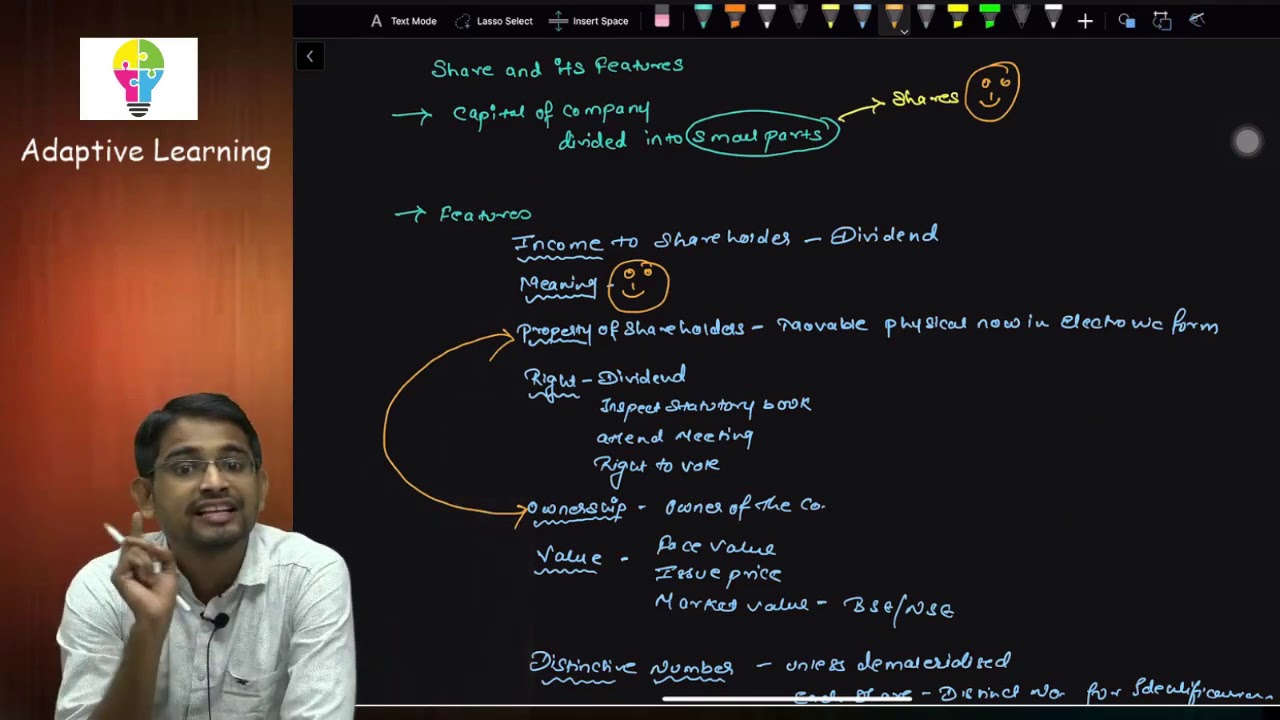 Text Mode
Lasso Select
Insert Space
Adaptive Learning
Share and its Features
→ Capital of company
divided into small parts → Shares
→ Features
Income to Shareholder - Dividend
Meaning -
Property of Shareholders - Movable physical now in electronic form
Right - Dividend
Inspect Statutory book
attend Meeting
Right to vote
Ownership - Owner of the Co.
Value - Face Value
Issue price
Market value - BSE/NSE
Distinctive Number - unless dematerialised
Each Share - Distinct No. for Identification